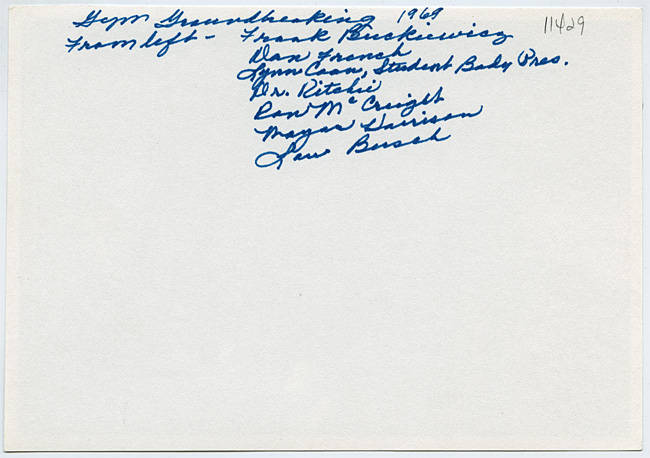 Gym Groundbreaking 1969
11429
From left - Frank Buckiewicz
Dan French
Lynn Coan, Student Body Pres.
Dr. Ritchie
Ron McCreight
Mayor Harrison
Lou Busch